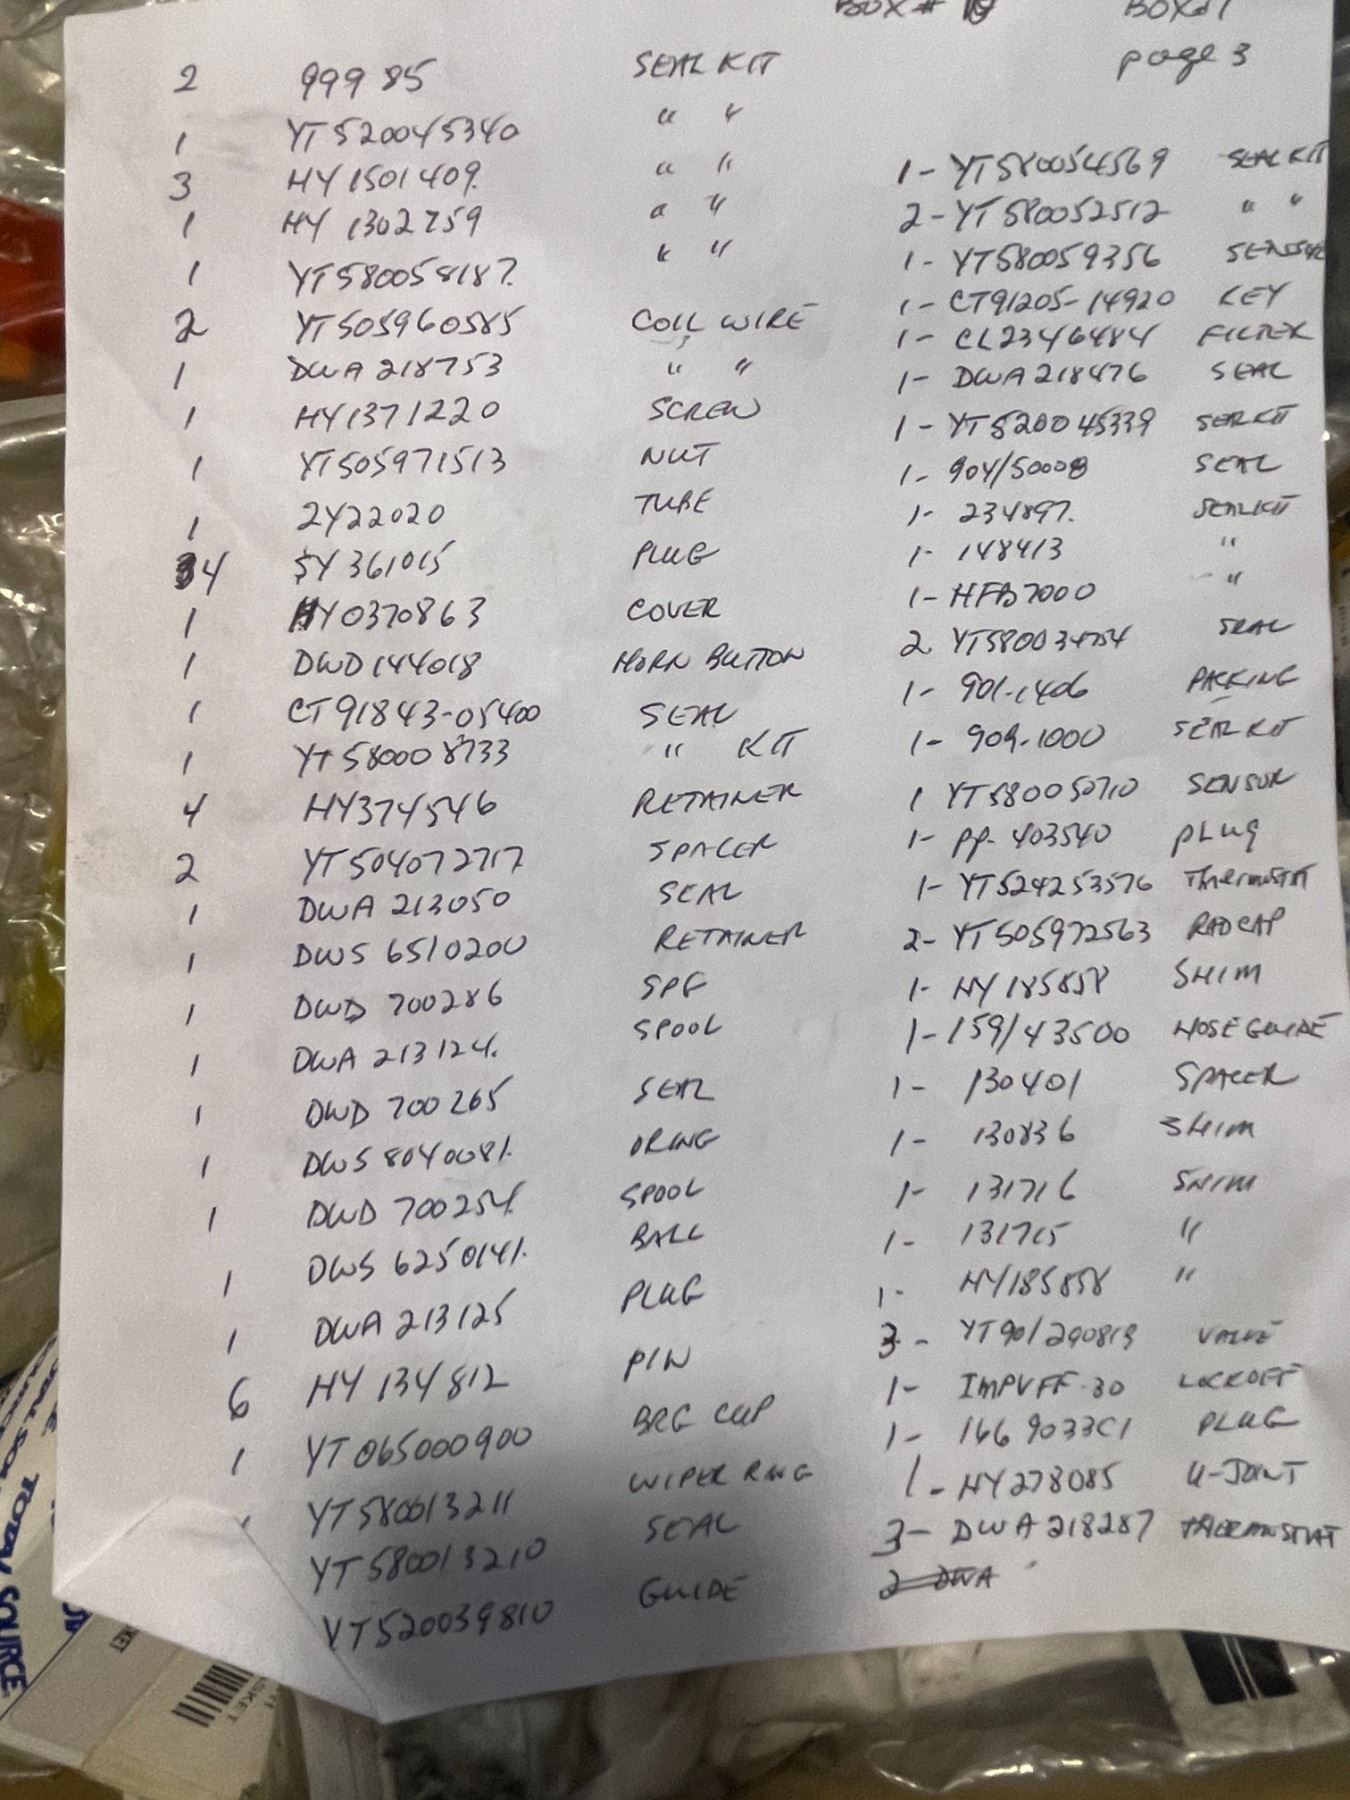 BOX # 10 BOX#1
page 3
2 99985 SEAL KIT
1 YT520045340 " "
3 HY1501409. " "
1 HY 1302759 " "
1 YT580058187. " "
2 YT505960585 COIL WIRE
1 DWA 218753 " "
1 HY1371220 SCREW
1 YT505971513 NUT
1 2422020 TUBE
4 SY361015 PLUG
1 HY0370863 COVER
1 DWD144018 HORN BUTTON
1 CT91843-05400 SEAL
1 YT580008733 " KIT
4 HY374546 RETAINER
2 YT504072717 SPACER
1 DWA 213050 SEAL
1 DWS 6510200 RETAINER
1 DWD 700286 SPG
1 DWA 213124. SPOOL
1 DWD 700265 SEAL
1 DWS 8040081. ORING
1 DWD 700254. SPOOL
1 DWS 6250141. BALL
1 DWA 213125 PLUG
6 HY 134812 PIN
1 YT065000900 BRG CUP
YT580013211 WIPER RING
YT580013210 SEAL
YT520039810 GUIDE
1- YT580054569 SEAL KIT
2- YT580052512 " "
1- YT580059356 SENSOR
1- CT91205-14920 KEY
1- CL2346484 FILTER
1- DWA218476 SEAL
1- YT520045339 SEAL KIT
1- 904/50008 SEAL
1- 234897. SEAL KIT
1- 148413 "
1- HFB7000 "
2 YT580034754 SEAL
1- 901-1406 PACKING
1- 909-1000 SEAL KIT
1 YT580050710 SENSOR
1- PP-403540 PLUG
1- YT524253576 Thermostat
2- YT505972563 RAD CAP
1- HY185858 SHIM
1- 159/43500 HOSE GUIDE
1- 130401 SPACER
1- 130836 SHIM
1- 131716 SHIM
1- 131715 "
1- HY185858 "
3- YT901290813 VALVE
1- IMPVFF-30 LOCKOFF
1- 1669033C1 PLUG
1- HY278085 U-JOINT
3- DWA218287 THERMOSTAT
2 DWA
TOTAL SOURCE